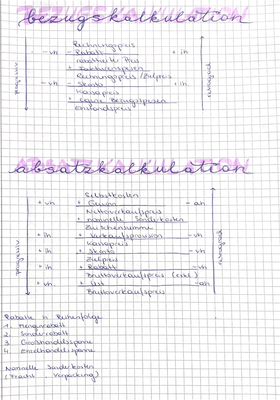 bezugskalkulation
Rechnungspreis
- vh - Rabatt + ih
reduzierter Preis
+ Fakturenspesen
Rechnungspreis / Zielpreis
- vh - Skonto + ih
Kassapreis
+ Bezugsspesen
Einstandspreis
progressiv
retrograd
absatzkalkulation
Selbstkosten
+ vh + Gewinn - ah
Nettoverkaufspreis
+ nominelle Sonderkosten
Zwischensumme
+ ih + Verkaufsprovision - vh
Kassapreis
+ ih + Skonto - vh
Zielpreis
+ ih + Rabatt - vh
Bruttoverkaufspreis (exkl.)
+ vh + USt - ah
Bruttoverkaufspreis
progressiv
retrograd
Rabatte in Reihenfolge
1. Mengenrabatt
2. Sonderrabatt
3. Großhandelsspanne
4. Einzelhandelsspanne
Nominelle Sonderkosten
(Fracht, Verpackung)